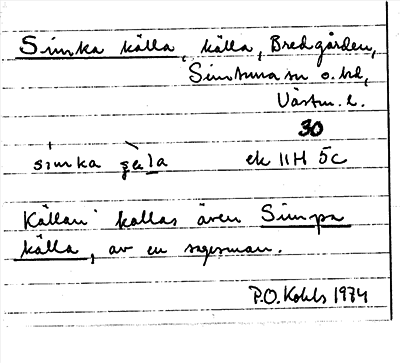 Simka källa, källa, Bredgården,
Simtuna sn o. hd,
Västm. l.
30
simka şela ek 11H 5c
Källan kallas även Simpa
källa, av en sagesman.
P.O. Kohls 1974